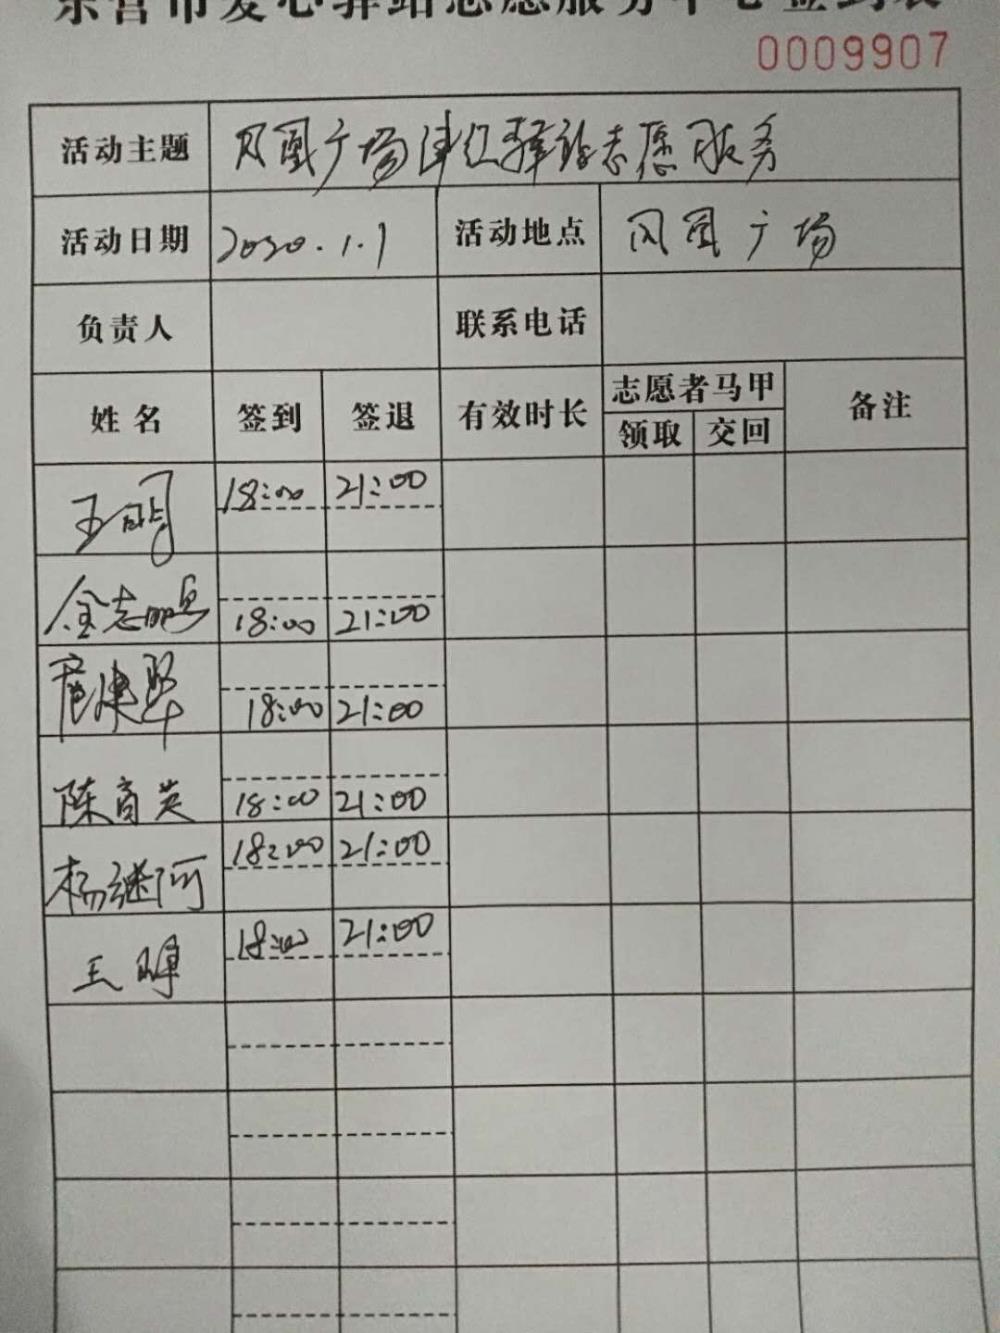 东营市爱心驿站志愿服务中心签到表
0009907
活动主题 凤凰广场津红驿站志愿服务
活动日期 2020.1.1 活动地点 凤凰广场
负责人 联系电话
姓名 签到 签退 有效时长 志愿者马甲 备注
领取 交回
王明 18:00 21:00
金志鹏 18:00 21:00
18:00 21:00
陈育英 18:00 21:00
杨继河 18:00 21:00
王晖 18:00 21:00